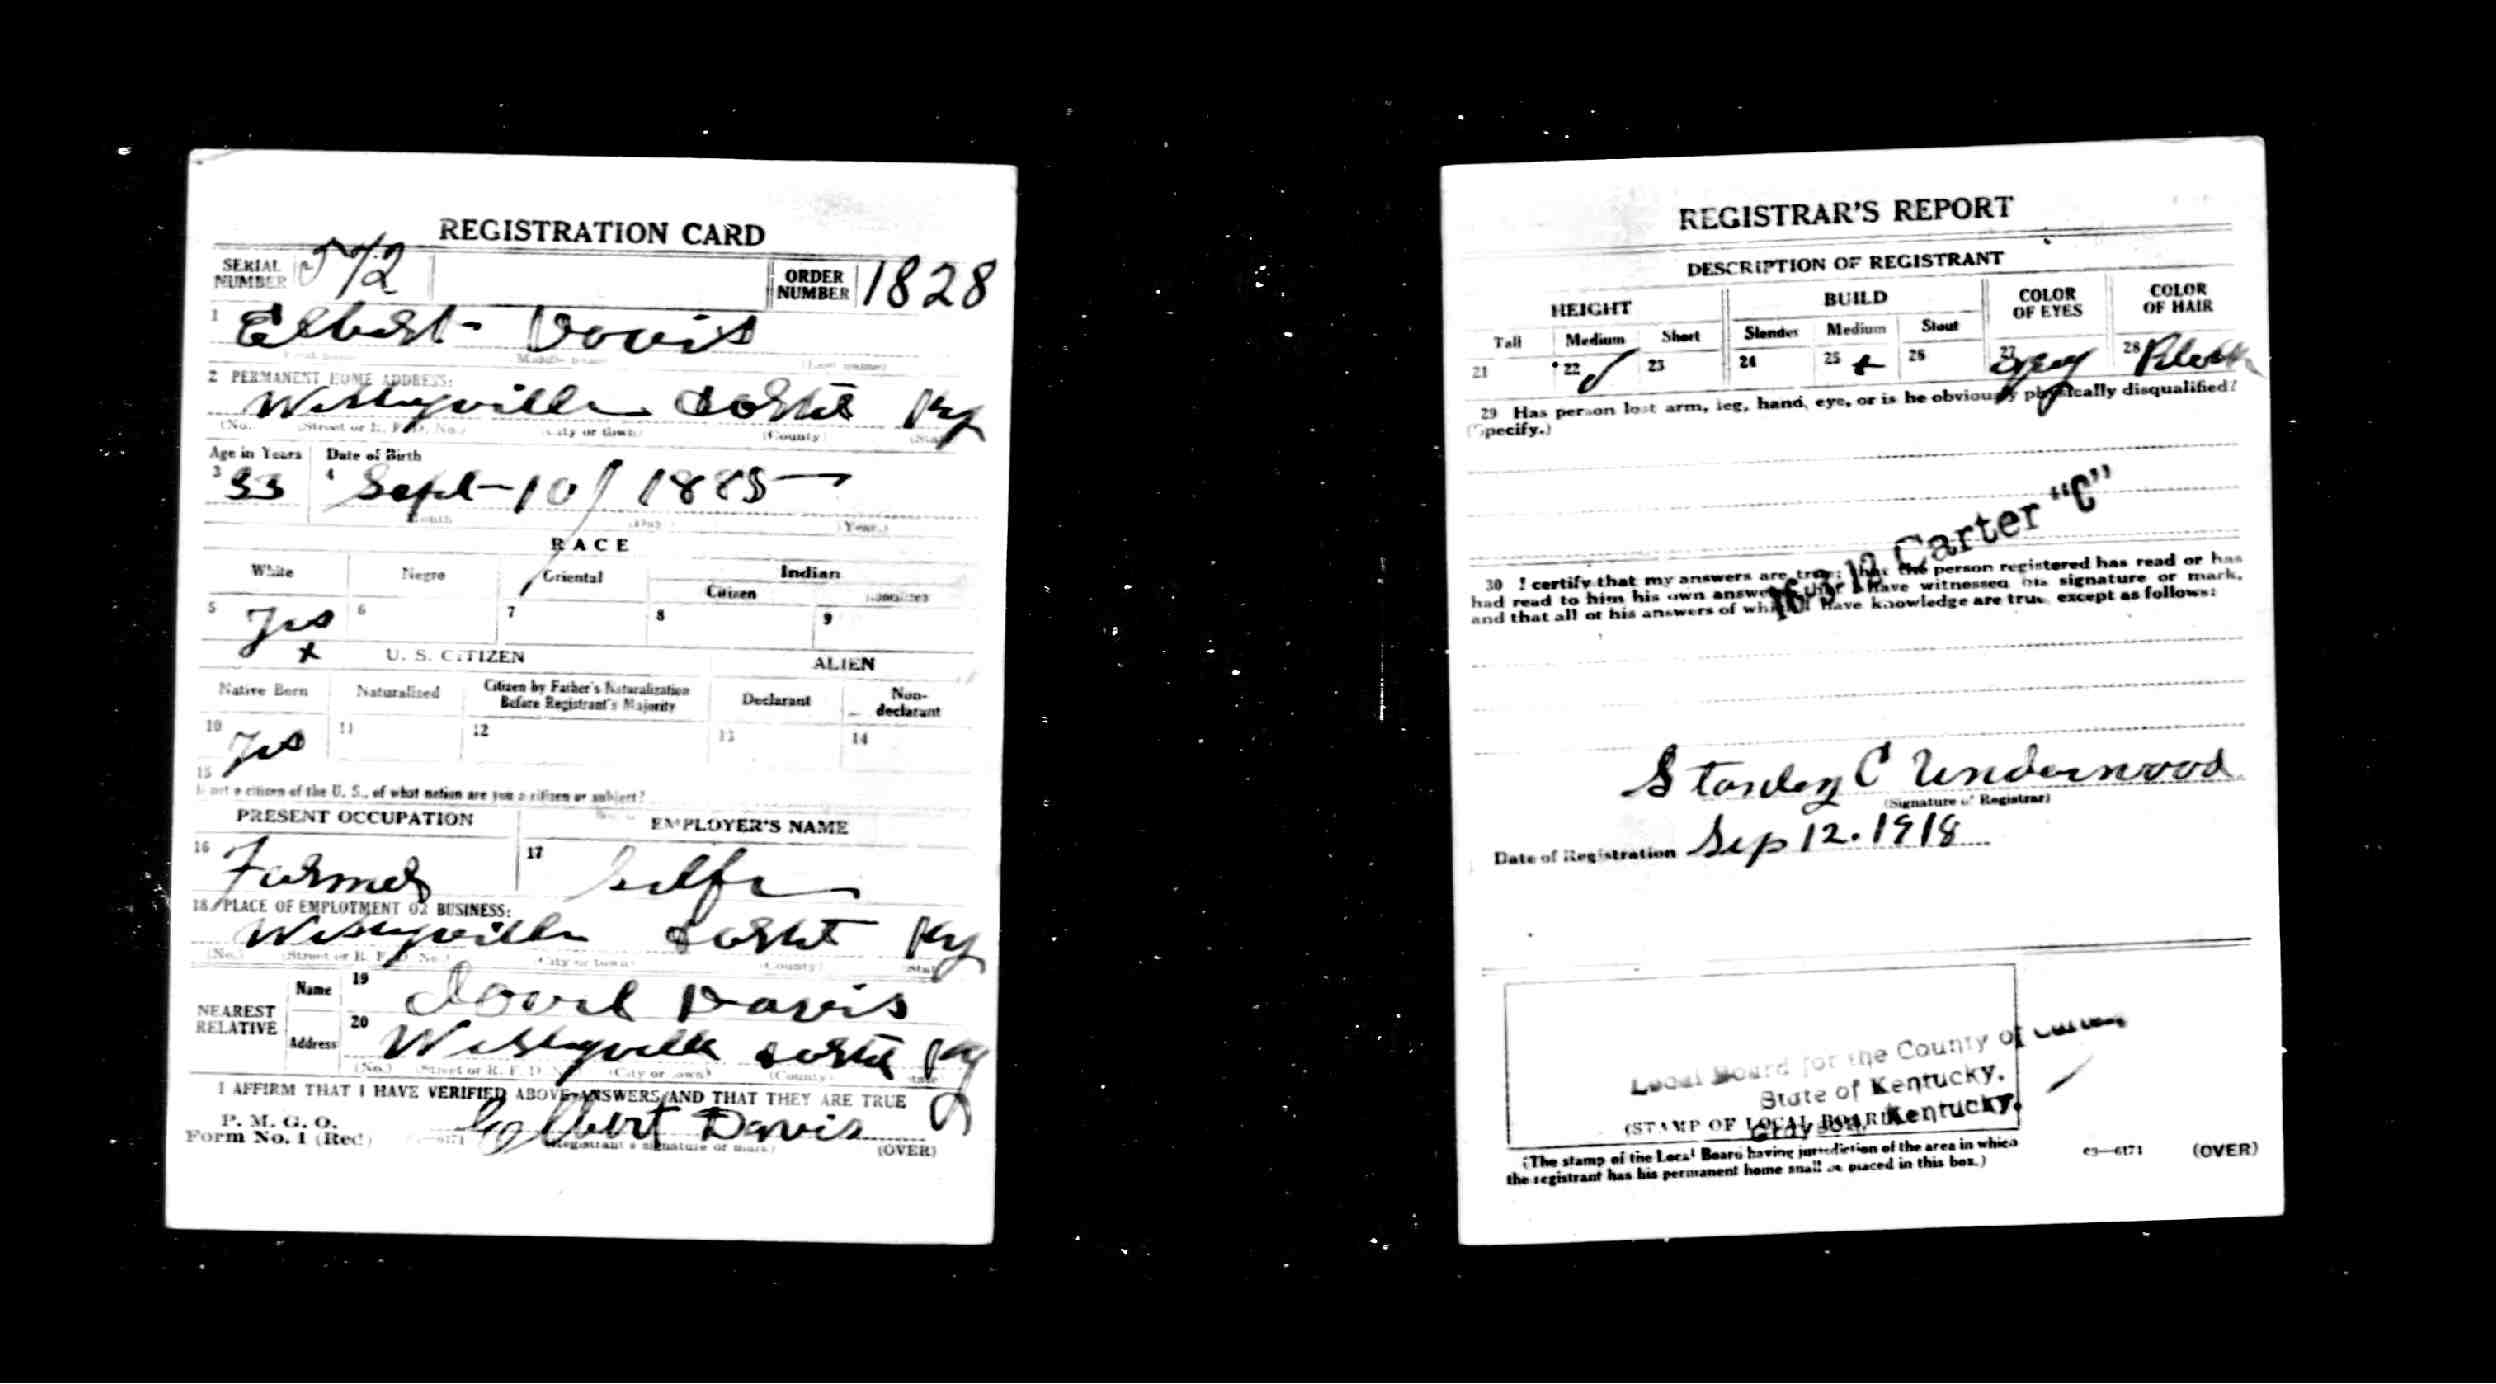 REGISTRATION CARD
SERIAL NUMBER
ORDER NUMBER 1828
1 Elbert Davis
(Last name)
2 PERMANENT HOME ADDRESS:
Wesleyville Carter Ky
(No.) (Street or R. F. D. No.) (City or town) (County) (State)
Age in Years Date of Birth
3 33 4 Sept 10 1885
Month (Day) (Year)
RACE
White Negro Oriental Indian
Citizen Noncitizen
5 Yes 6 7 8 9
x
U. S. CITIZEN ALIEN
Native Born Naturalized Citizen by Father's Naturalization Before Registrant's Majority Declarant Non-declarant
10 Yes 11 12 13 14
15
If not a citizen of the U. S., of what nation are you a citizen or subject?
PRESENT OCCUPATION EMPLOYER'S NAME
16 Farmer 17 Self
18 PLACE OF EMPLOYMENT OR BUSINESS:
Wesleyville Carter Ky
(No.) (Street or R. F. D. No.) (City or town) (County) (State)
NEAREST RELATIVE
Name 19 Davis
Address 20 Wesleyville Carter Ky
(No.) (Street or R. F. D. No.) (City or town) (County) (State)
I AFFIRM THAT I HAVE VERIFIED ABOVE ANSWERS AND THAT THEY ARE TRUE
P. M. G. O.
Form No. 1 (Red) Elbert Davis
(Registrant's signature or mark) (OVER)
REGISTRAR'S REPORT
DESCRIPTION OF REGISTRANT
HEIGHT BUILD COLOR OF EYES COLOR OF HAIR
Tall Medium Short Slender Medium Stout
21 22 ✓ 23 24 25 x 26 27 28 Black
29 Has person lost arm, leg, hand, eye, or is he obviously physically disqualified?
(Specify.)
16-3-12 Carter "C"
30 I certify that my answers are true; that the person registered has read or has
had read to him his own answers; that I have witnessed his signature or mark,
and that all of his answers of which I have knowledge are true, except as follows:
Stanley C Underwood
(Signature of Registrar)
Date of Registration Sep 12. 1918
Local Board for the County of Carter
State of Kentucky.
Grayson, Kentucky.
(STAMP OF LOCAL BOARD)
(The stamp of the Local Board having jurisdiction of the area in which
the registrant has his permanent home shall be placed in this box.)
03—6171 (OVER)